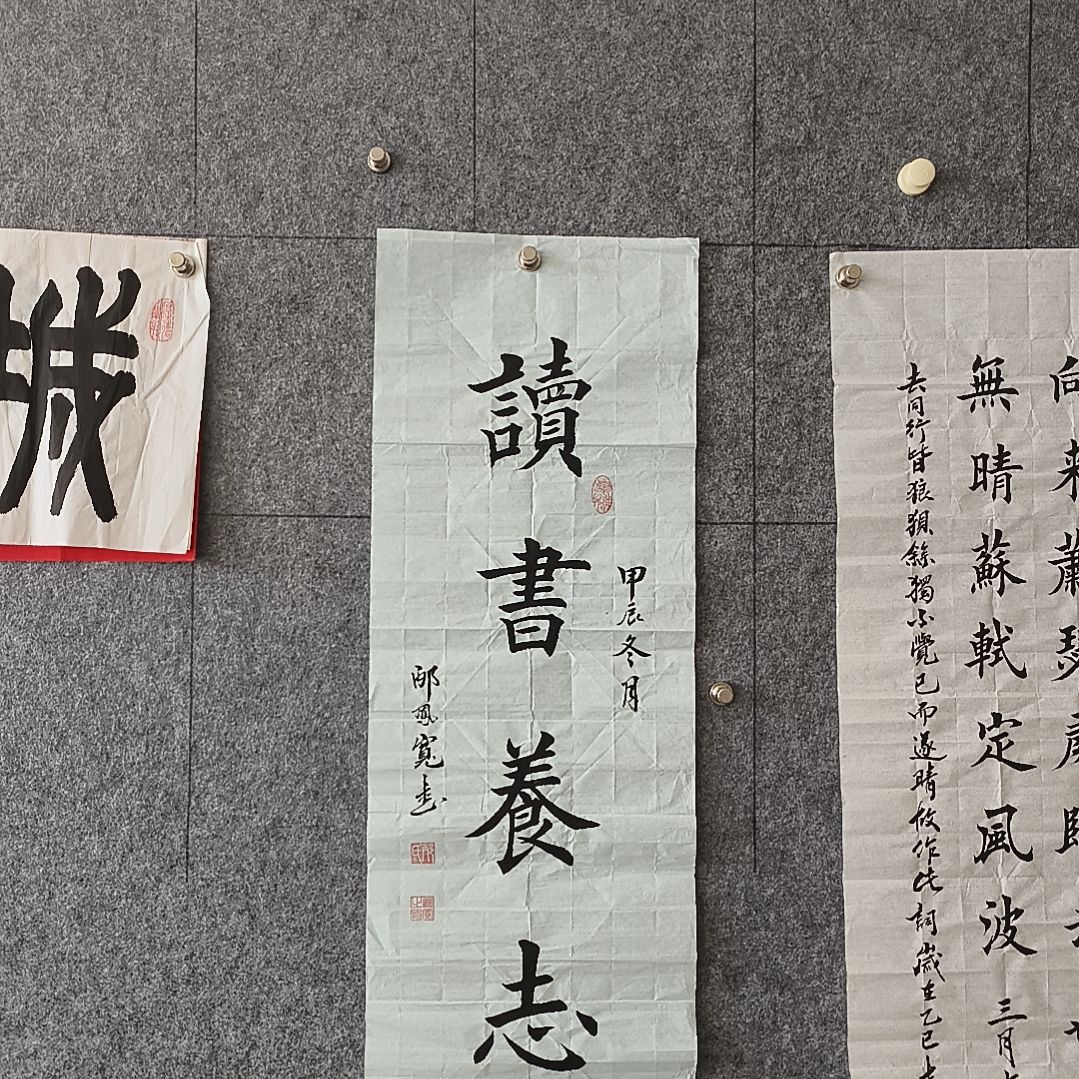 城
甲辰冬月
讀書養志
邴鳳寬書
向来蕭瑟處歸去
無晴蘇軾定風波 三月
去同行皆狼狽餘獨不覺已而遂晴故作此詞歲在乙巳